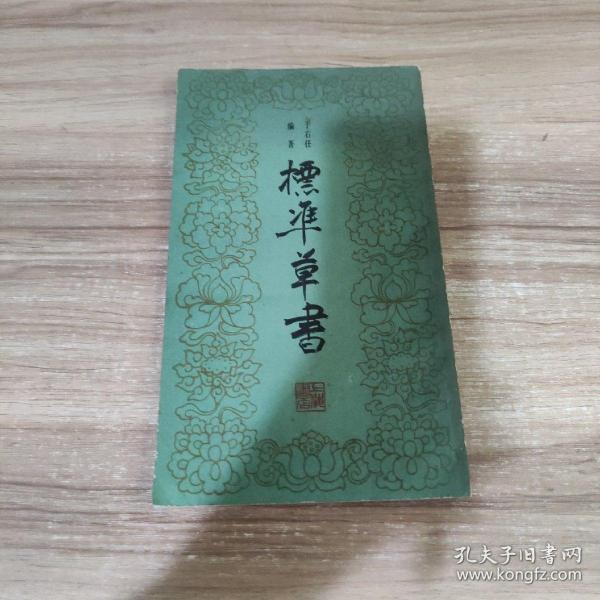 于右任
编著
標準草書
上海
书店
孔夫子旧书网
www.kongfz.com